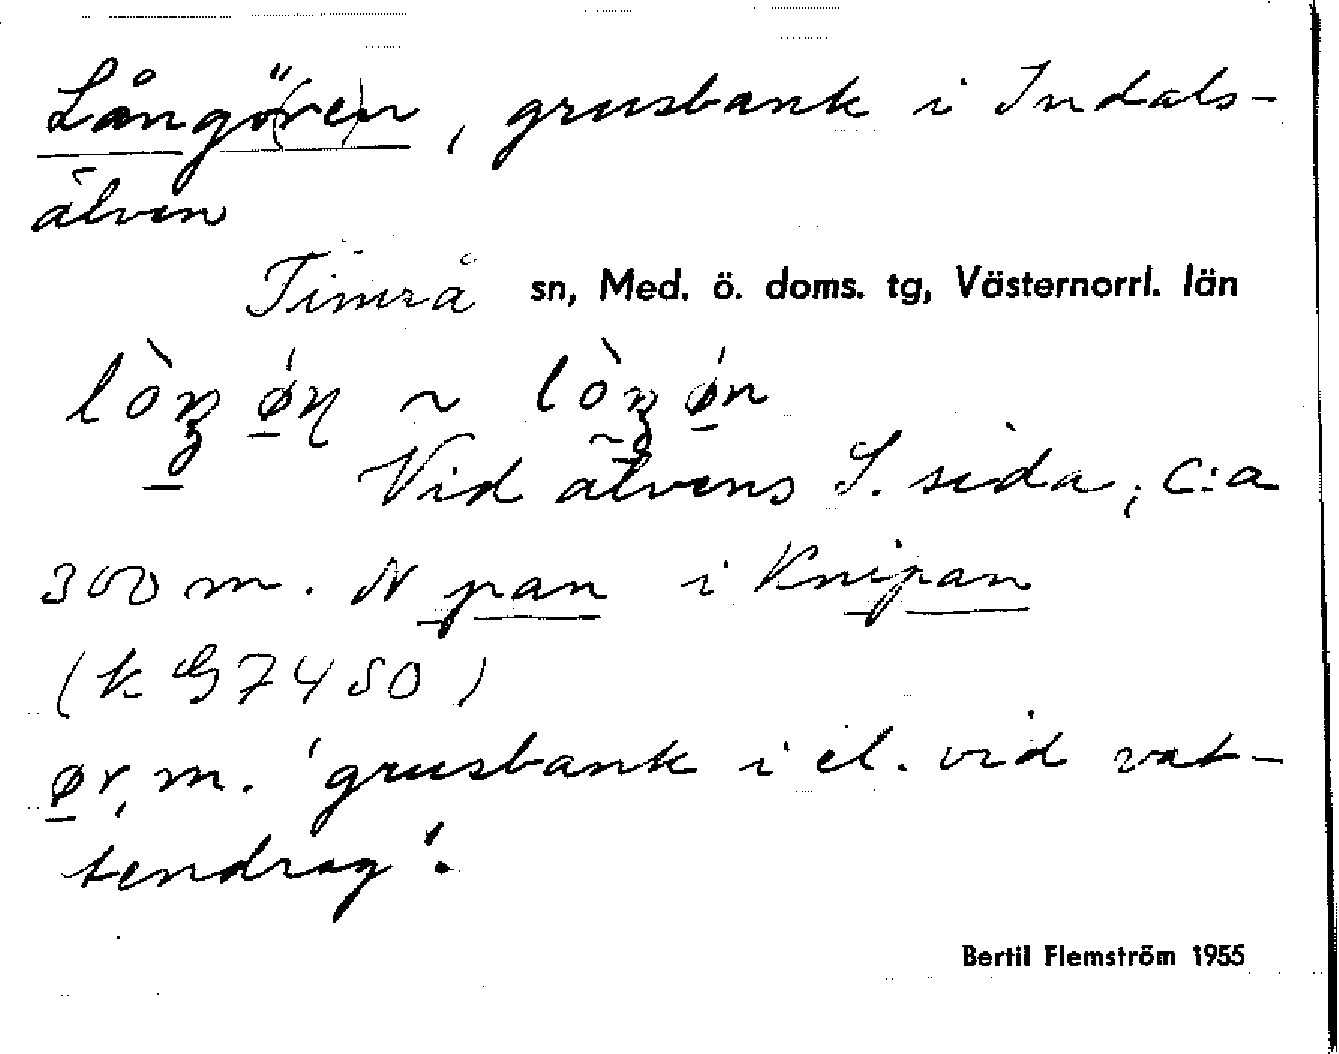 Långö(re)n, grusbank i Indals-
älven
Timrå sn, Med. ö. doms. tg, Västernorrl. län
lòŋ ǿɳ ~ lòŋ ǿn
Vid älvens S. sida, c:a
300 m. N pan i Knipan
(k G7450)
ør, m. 'grusbank i el. vid vat-
tendrag'.
Bertil Flemström 1955